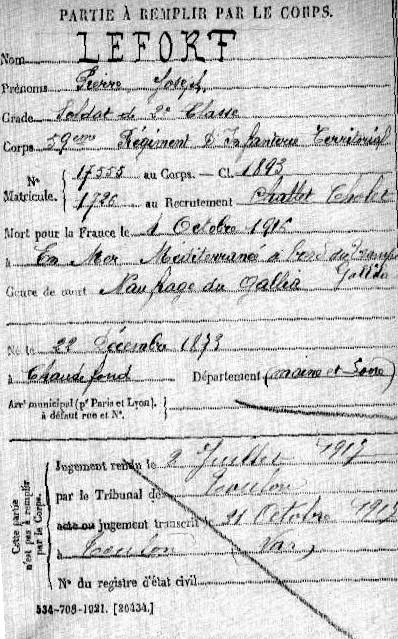 PARTIE À REMPLIR PAR LE CORPS.
Nom LEFORT
Prénoms Pierre Joseph
Grade Soldat de 2e Classe
Corps 59eme Régiment d'Infanterie Territorial
N° Matricule. { 17555 au Corps. — Cl. 1893
1726 au Recrutement Cholet
Mort pour la France le 4 Octobre 1916
à En Mer Méditerranée à bord du
Gallia
Genre de mort Naufrage du Gallia
Né le 22 Décembre 1873
à Chaudefond Département (Maine et Loire)
Arrt municipal (pr Paris et Lyon).
à défaut rue et N°.
Cette partie n'est pas à remplir par le Corps.
Jugement rendu le 2 Juillet 1917
par le Tribunal de Toulon
acte ou jugement transcrit le 21 Octobre 1917
à Toulon (Var)
N° du registre d'état civil
534-708-1921. [26434.]